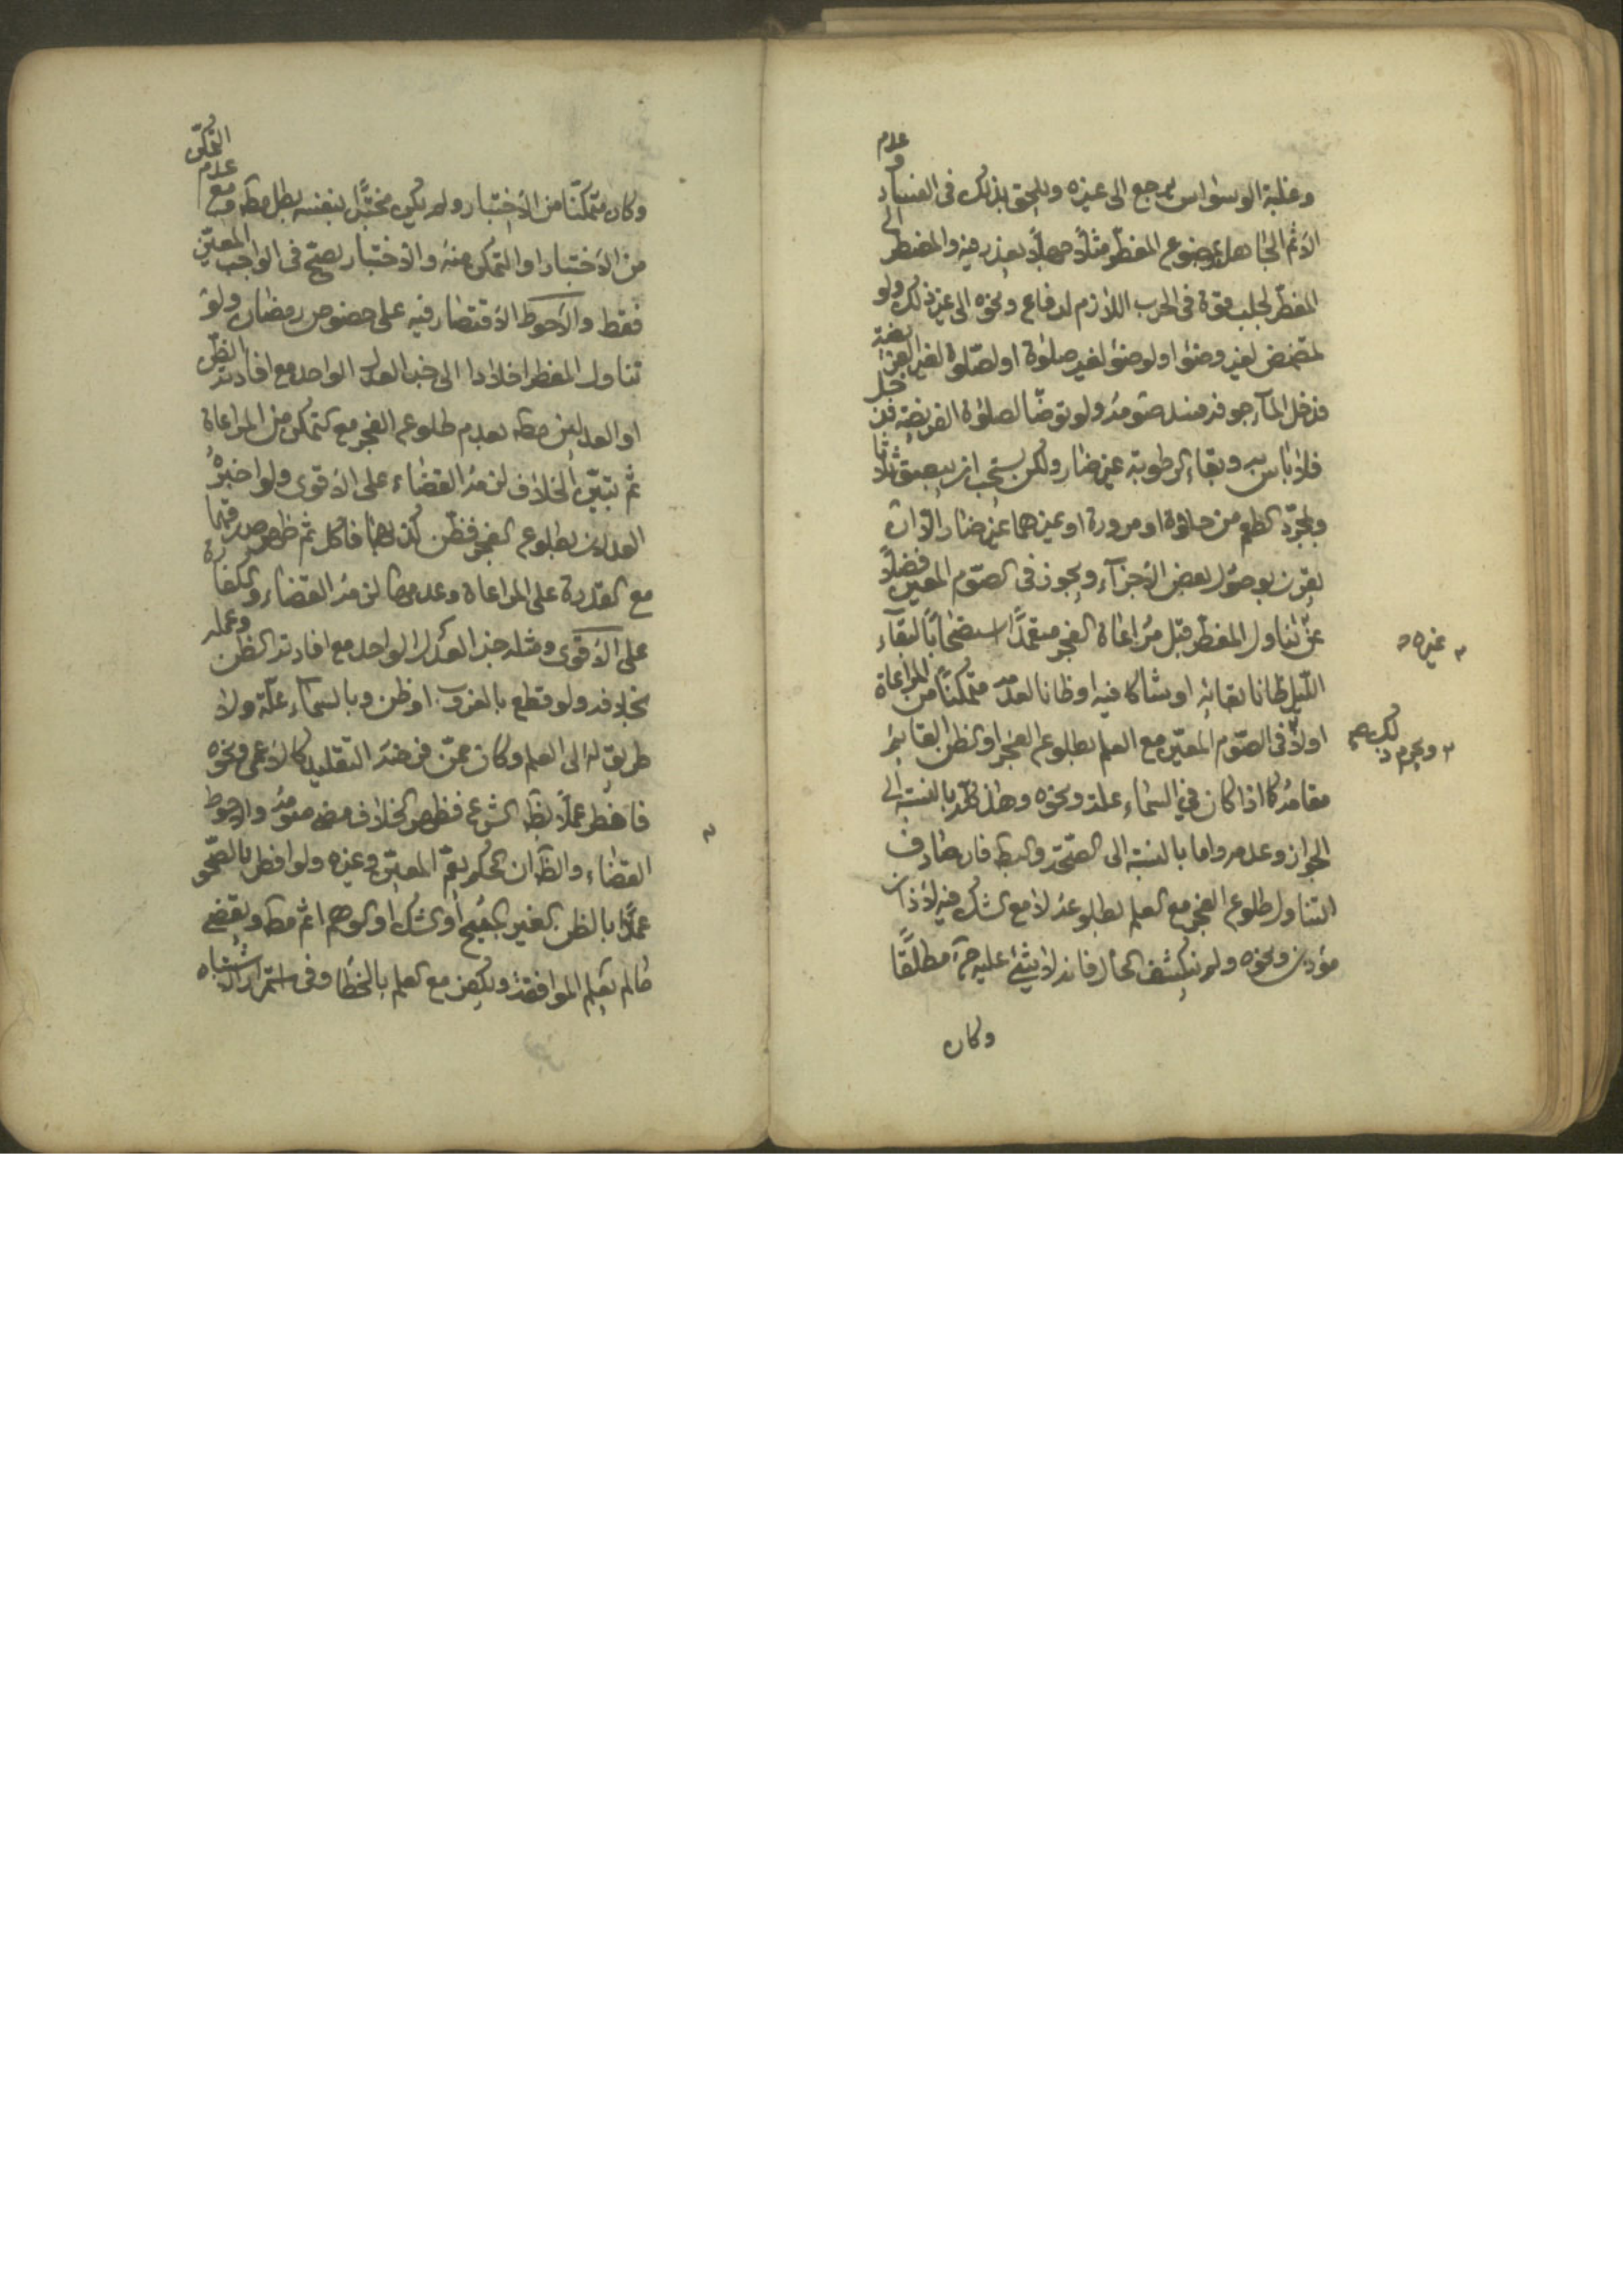 وغلبة الوسواس يرجع الى غيره ويلحق بذلك فى الفساد وعدم
الاثم الجاهل بموضوع المفطر مثلا جهلا يعذر فيه والمضطر الى
المفطر لجلب قوة فى الحرب اللازم لدفاع ونحوه الى غير ذلك ولو
تمضمض لغير وضوء او لوضوء لغير صلوة او لصلوة لغير الفريضة
فدخل الماء جوفه فسد صومه ولو توضأ لصلوة الفريضة فدخل
فلا باس به وبقاء الرطوبة غير ضار ولكن يستحب ان يبصق ثلاثا
ومجرد الطعم من حلاوة او مرورة او غيرهما غير ضار الا ان
يقرن بوصول بعض الاجزاء ويجوز فى الصوم المعين فضلا
عن غيره تناول المفطر قبل مراعاة الفجر متعمدا استصحابا لبقاء
الليل ظانا بقائه او شاكا فيه او ظانا لعدمه متمكنا من المراعاة
اولا ويحرم ذلك فى الصوم المعين مع العلم بطلوع الفجر او الظن القائم
مقامه كما اذا كان في السماء علة ونحوه وهذا كله بالنسبة الى
الجواز وعدمه واما بالنسبة الى الصحة والبط فان صادف
التناول طلوع الفجر مع العلم بطلوعه لا مع الشك فيه لاذان
مؤذن ونحوه ولم ينكشف الحال فانه لا شيئ عليه ح مطلقا
وكان
وكان متمكنا من الاختبار ولم يكن مختبرا بنفسه بطل صومه ومع عدم التمكن
من الاختبار او التمكن منه والاختبار يصح فى الواجب المعين
فقط والاحوط الاقتصار فيه على خصوص رمضان ولو
تناول المفطر اخلادا الى خبر العدل الواحد مع افادته الظن
او العدلين مط بعدم طلوع الفجر مع التمكن من المراعاة
ثم تبين الخلاف لزمه القضاء على الاقوى ولو اخبره
العدلان بطلوع الفجر فظن كذبهما فاكل ثم ظهر صدقهما
مع القدرة على المراعاة وعدمها لزمه القضاء والكفارة
على الاقوى ومثله خبر العدل الواحد مع افادته الظن وعمله
بخلافه ولو قطع بالغروب او ظن وبالسماء علة ولا
طريق له الى العلم وكان ممن فرضه التقليد كالاعمى ونحوه
فافطر عملا بظنه الشرعي فظهر الخلاف مضى صومه والاحوط
القضاء والظ ان الحكم يعم المعين وغيره ولو افطر بالصحو
عملا بالظن الغير المبيح او الشك او الوهم اثم مط ويقضي
ما لم يعلم الموافقة ويكفر مع العلم بالخطا وفى استمرار الاشتباه